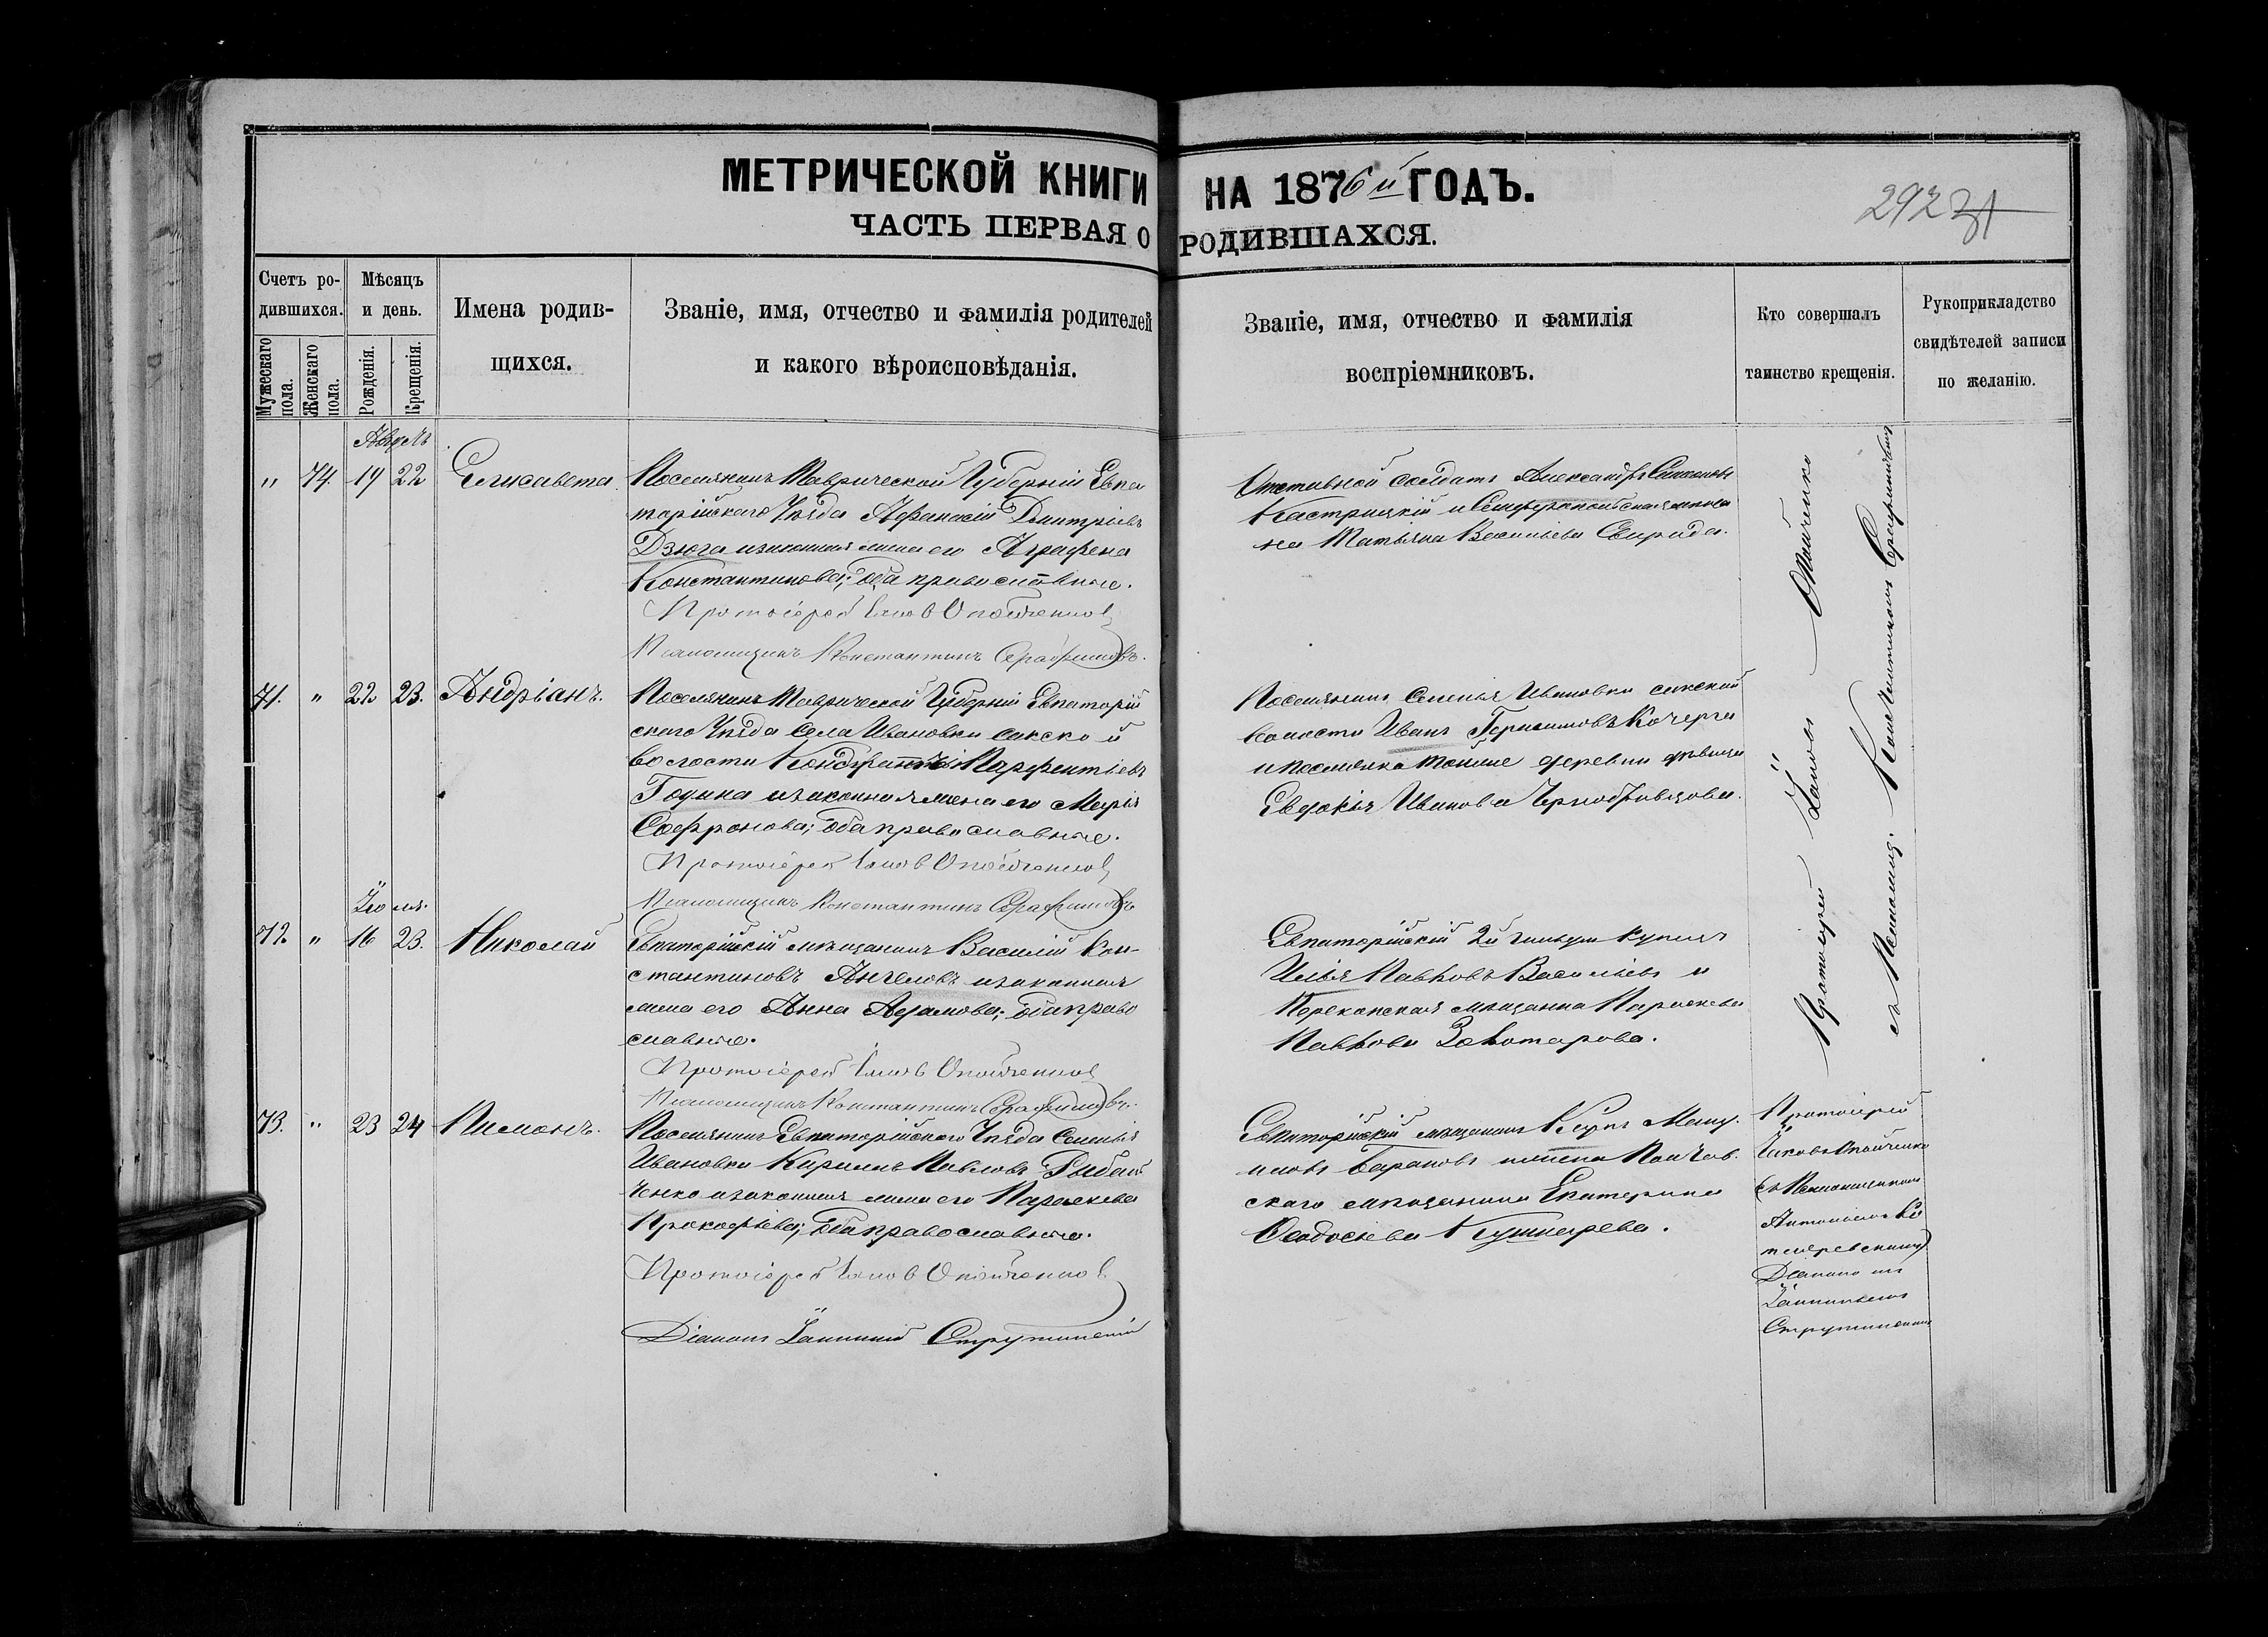 МЕТРИЧЕСКОЙ КНИГИ НА 1876й ГОДЪ.
ЧАСТЬ ПЕРВАЯ О РОДИВШАХСЯ.
292
31
Счетъ ро-
дившихся.
Мужескаго пола.
Женскаго пола.
Мѣсяцъ
и день.
Рожденія.
Крещенія.
Имена родив-
щихся.
Званіе, имя, отчество и фамилія родителей
и какого вѣроисповѣданія.
Званіе, имя, отчество и фамилія
воспріемниковъ.
Кто совершалъ
таинство крещенія.
Рукоприкладство
свидѣтелей записи
по желанію.
" 74. 19 22 Елисавета
Поселянинъ Таврической Губерніи Евпа
торійскаго Уѣзда Афанасій Дмитріевъ
Дзюга и законная жена его Аграфена
Константинова; оба православные.
Протоіерей Іаковъ
Псаломщикъ Константинъ Серафимовъ.
Отставной солдатъ Александръ
Кастрицкій и
на Татьяна Васильева Свирида.
71. " 22 23. Андріанъ.
Поселянинъ Таврической Губерніи Евпаторій
скаго Уѣзда Села Ивановки сакской
волости Парфентіевъ
Година и законная жена его Марія
Софронова; оба православные.
Протоіерей Іаковъ
Псаломщикъ Константинъ Серафимовъ
Поселянинъ Селенія Ивановки сакской
волости Иванъ Герасимовъ Кочерга
и поселянка тойже деревни дѣвица
Евдокія Иванова
Іюля.
72. " 16 23. Николай
Евпаторійскій мѣщанинъ Василій Кон-
стантиновъ Ангеловъ и законная
жена его Анна Адамова; оба право
славные.
Протоіерей Іаковъ
Псаломщикъ Константинъ Серафимовъ.
Евпаторійскій 2й гильдіи купецъ
Илья Павловъ Васильевъ и
Перекопская мѣщанка Параскева
Павлова Золотарова.
73. " 23 24 Пимонъ.
Поселянинъ Евпаторійскаго Уѣзда Селенія
Ивановки Кирилъ Павловъ Рыбал
ченко и законная жена его Параскева
Прокофіева; оба православные.
Протоіерей Іаковъ
Діаконъ Іанникій Струтинскій
Евпаторійскій мѣщанинъ Киръ
Барановъ и жена Полтав.
скаго мѣщанина Екатерина
Феодосіева Кушнарева.
Протоіерей Іаковъ
съ Псаломщ. Константиномъ Серафимовымъ
Протоіерей
Іаковъ
съ Псаломщикомъ
Антоніемъ
Діакономъ
Іанникіемъ
Струтинскимъ